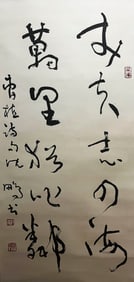 丈夫志四海
萬里猶比鄰
曹植詩句沈鵬書